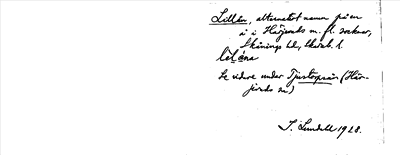 Lillån, alternativt namn på en
å i Härjevads m. fl. socknar,
Skånings hd, Skarab. l.
lìlána
Se vidare under Tjustorpsån (Här-
jevads sn)
S. Lundell 1928.